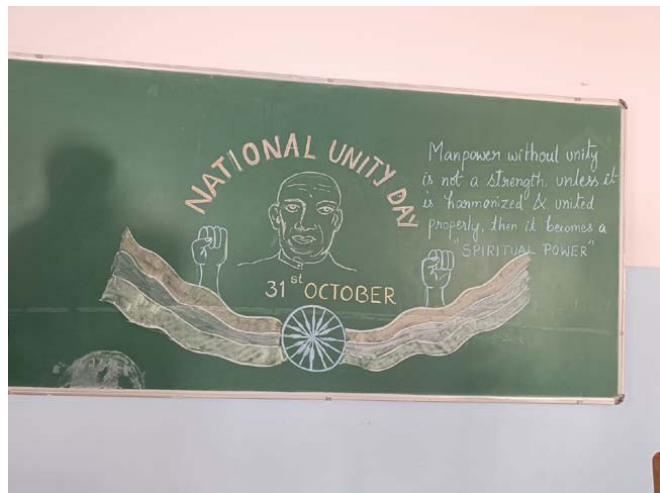 NATIONAL UNITY DAY
31st OCTOBER
Manpower without unity
is not a strength unless it
is harmonized & united
properly, then it becomes a
"SPIRITUAL POWER"